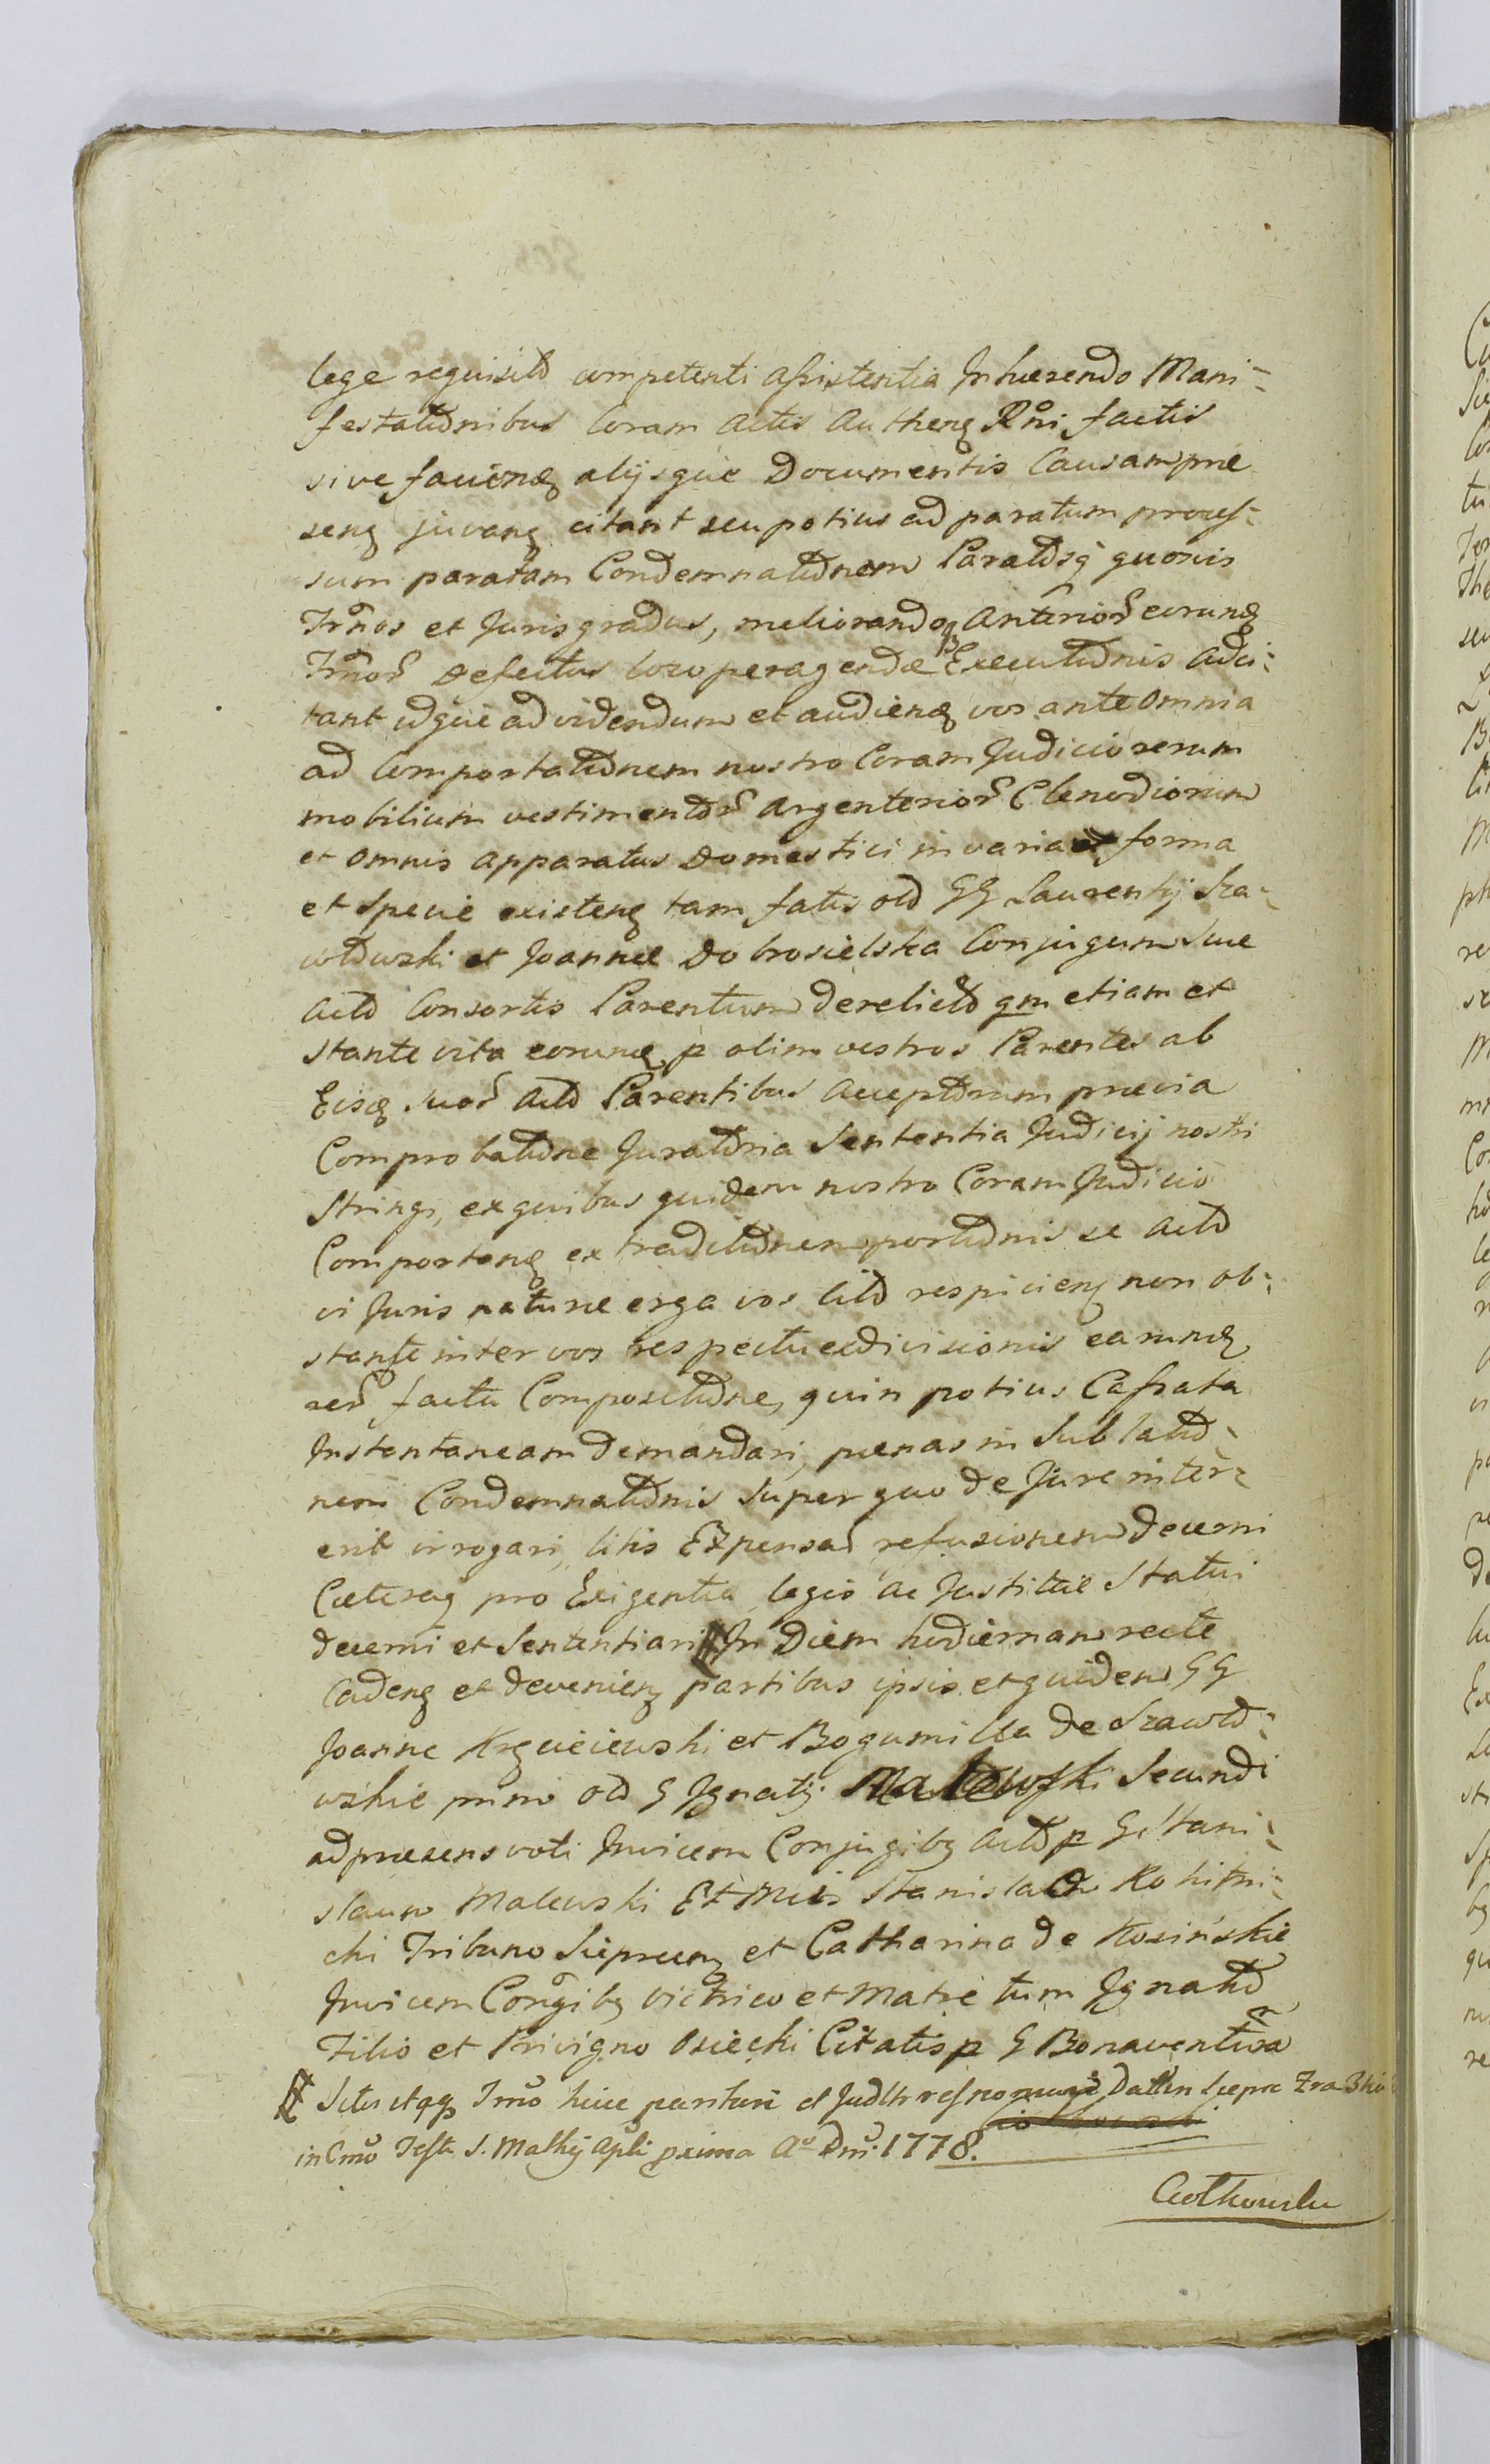 lege requisito competenti assistentia Inhaerendo Mani-
festationibus Coram Actis Autheng Rñi factis
sive faciend alijsque Documentis Causam prae
seng juvang citant seu potius ad paratum proces-
sum paratam Condemnationem Paratosq quosvis
Trños et Juris gradus, meliorandoq Anterior eorund
Trñor Defectus loco peragendae Executionis adci-
tant idque ad videndum et audiend vos ante omnia
ad Comportationem nostro Coram Judicio rerum
mobilium vestimentor Argenterior Clenodiorum
et omnis apparatus Domestici in varia forma
et Specie existeng tam fatis olo GG Laurentij Sza-
wlowski et Joannae Dobrosielska Conjugum Suae
Acto Consortis Parentum derelicto qm etiam et
stante vita eorund p olim vestros Parentes ab
Eisd suor Acto Parentibus acceptorum praevia
Comprobatione Juratoria Sententia Judicij nostri
Stringi, ex quibus quidem nostro Coram Judicio
Comportand extraditionem portionis se Acto
vi Juris naturae erga vos Cito respicieng non ob-
stante inter vos respectu exdivisionis earund
rer facta Compositione, quin potius Cassata
Instantaneam demandari, paenas in Sublatio-
nem Condemnationis Super quo de Jure inter-
erit irrogari, litis Expensar refusionem decerni
Caeteraq pro Exigentia legis ac Justitiae Statui
decerni et Sententiari In Diem hodiernam recte
Cadeng et devenieng partibus ipsis et quidem GG
Joanne et Bogumilla de Szawlo-
wskie primi olo G Ignatij Malewski Secundi
ad praesens voti Invicem Conjugibg Acto p G Stani-
slaum Malewski Et Mcis Stanislao Rokitni-
cki Tribuno Sieprceng et Catharina de Kosinskie
Invicem Congibg vitrico et Matre tum Ignatio
Filio et Privigno Osiecki Citatis p G Bonaventura
Sitis itaqg Trño huic parituri et Judltr responsuri Datt in Siepre Zra Bhis
in Crño Festi S. Mathij Apli prima Aº Dni: 1778.